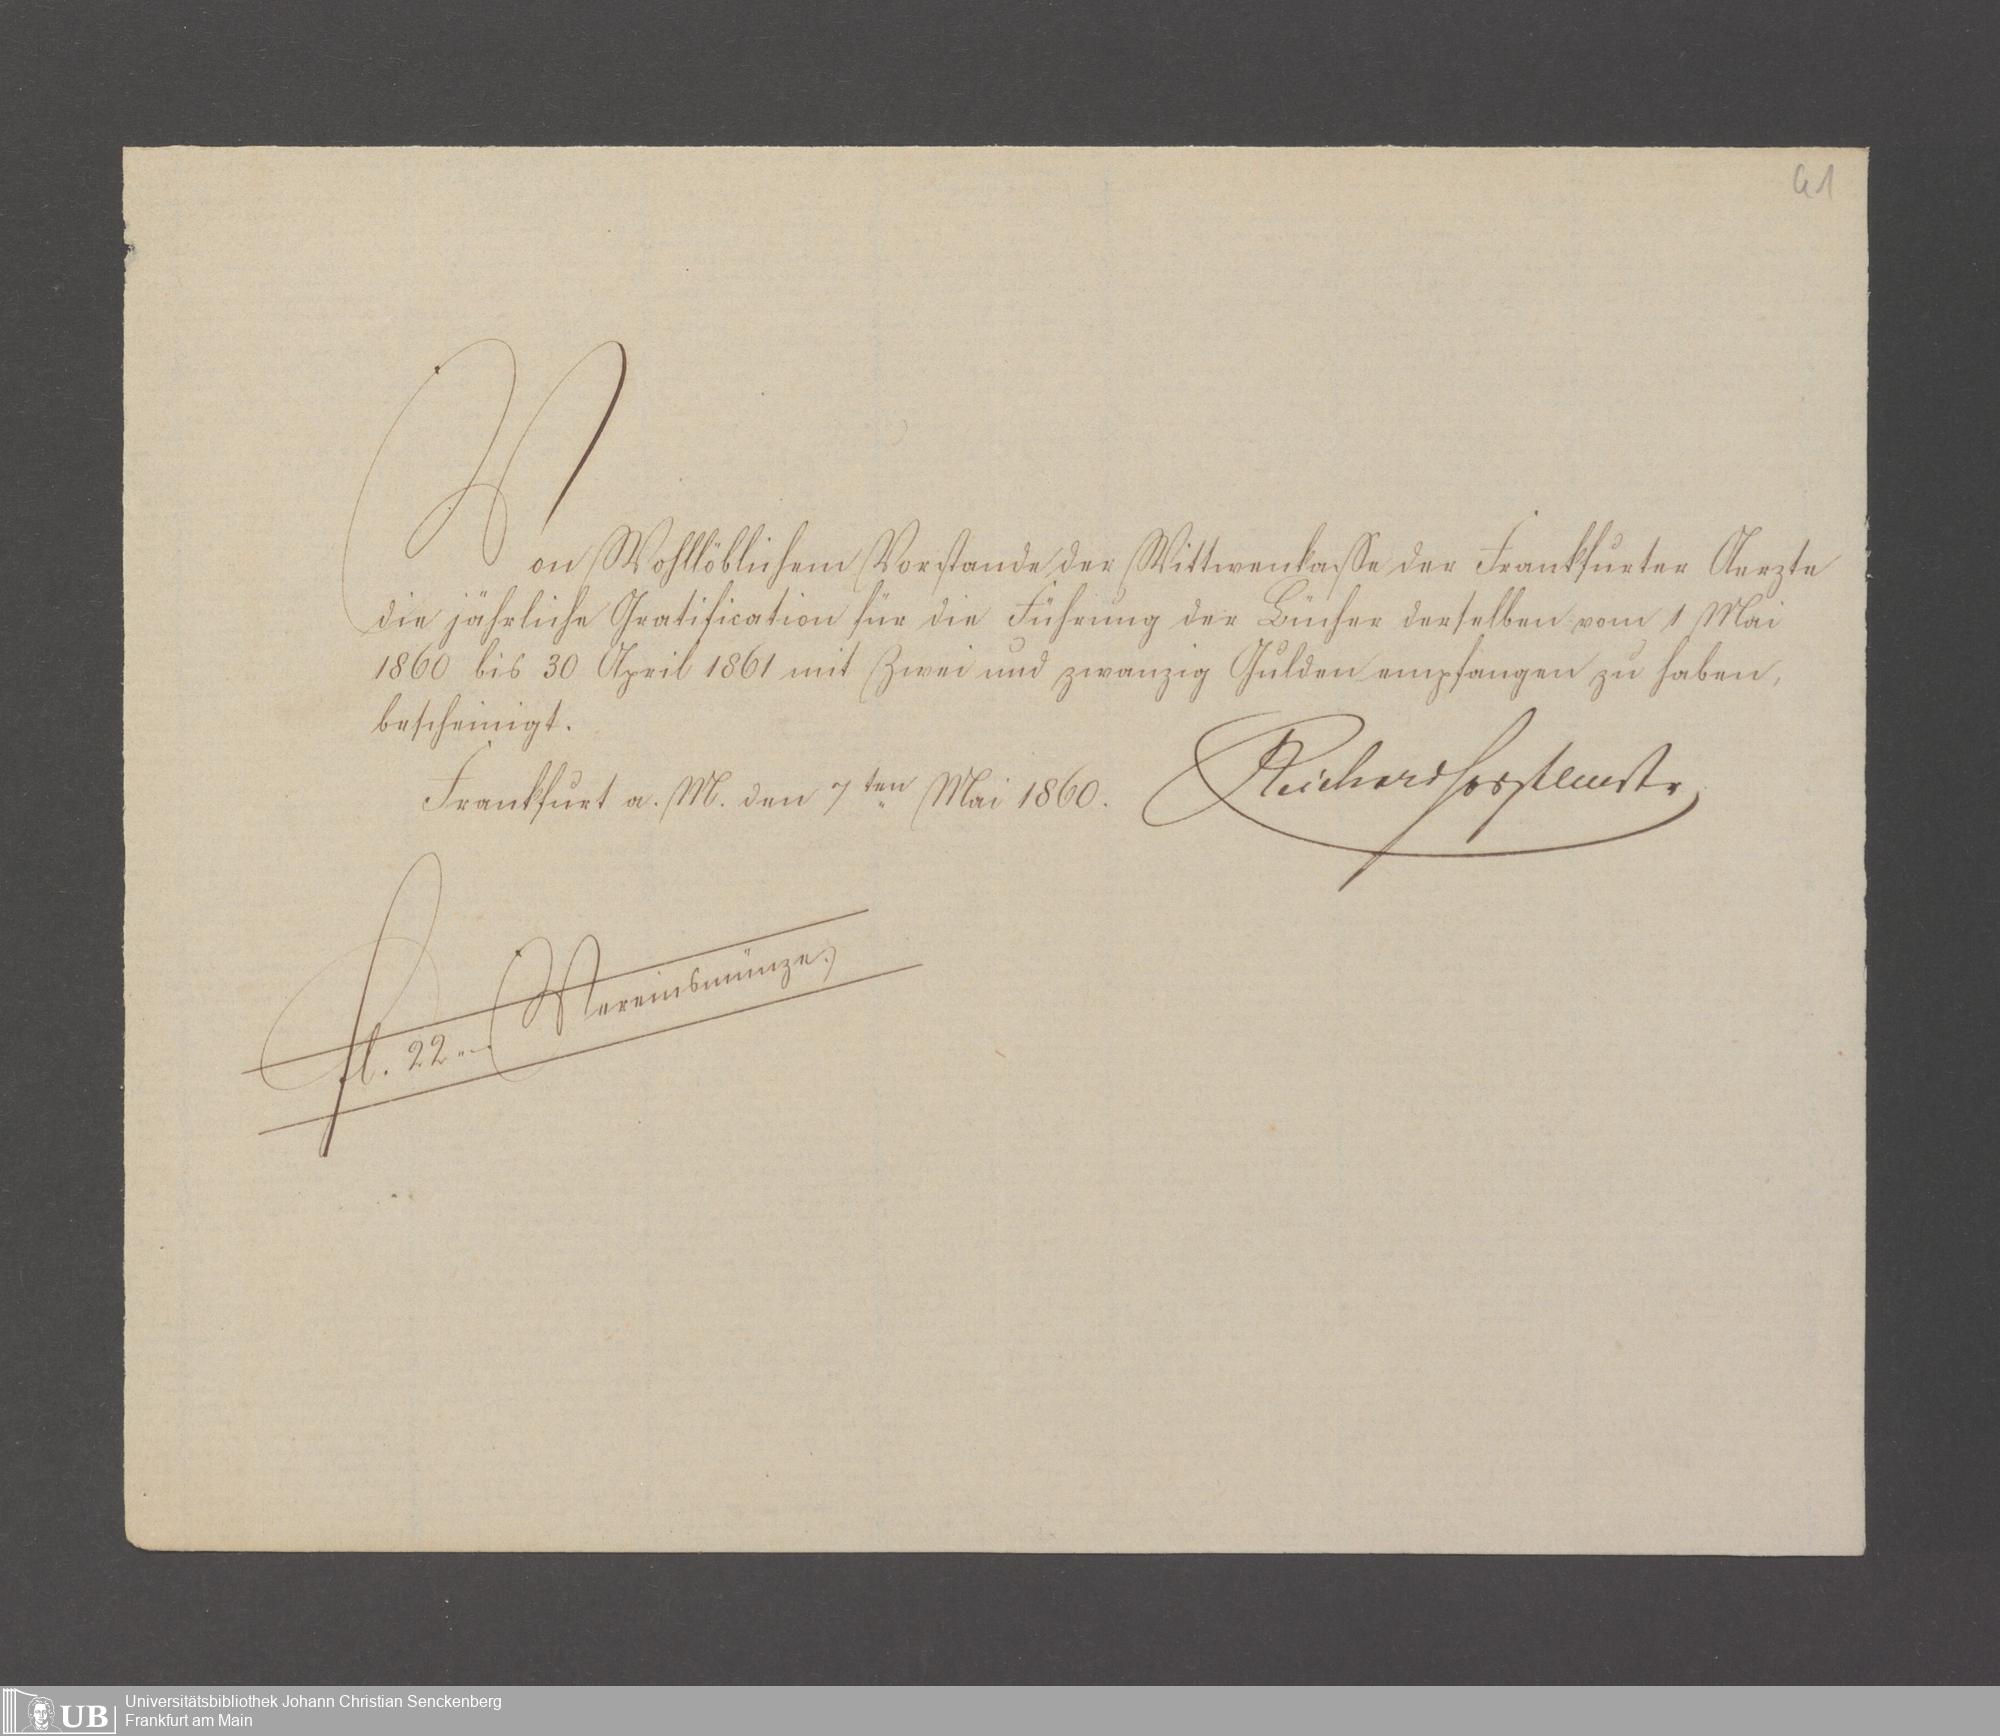 41
Von Wohllöblichem Vorstande der Wittwenkasse der Frankfurter Aerzte
die jährliche Gratification für die Führung der Bücher derselben vom 1 Mai
1860 bis 30 April 1861 mit Zwei und zwanzig Gulden empfangen zu haben,
bescheinigt.
Frankfurt a. M. den 7ten Mai 1860.
fl. 22 „— Vereinsmünze.
UB
Universitätsbibliothek Johann Christian Senckenberg
Frankfurt am Main